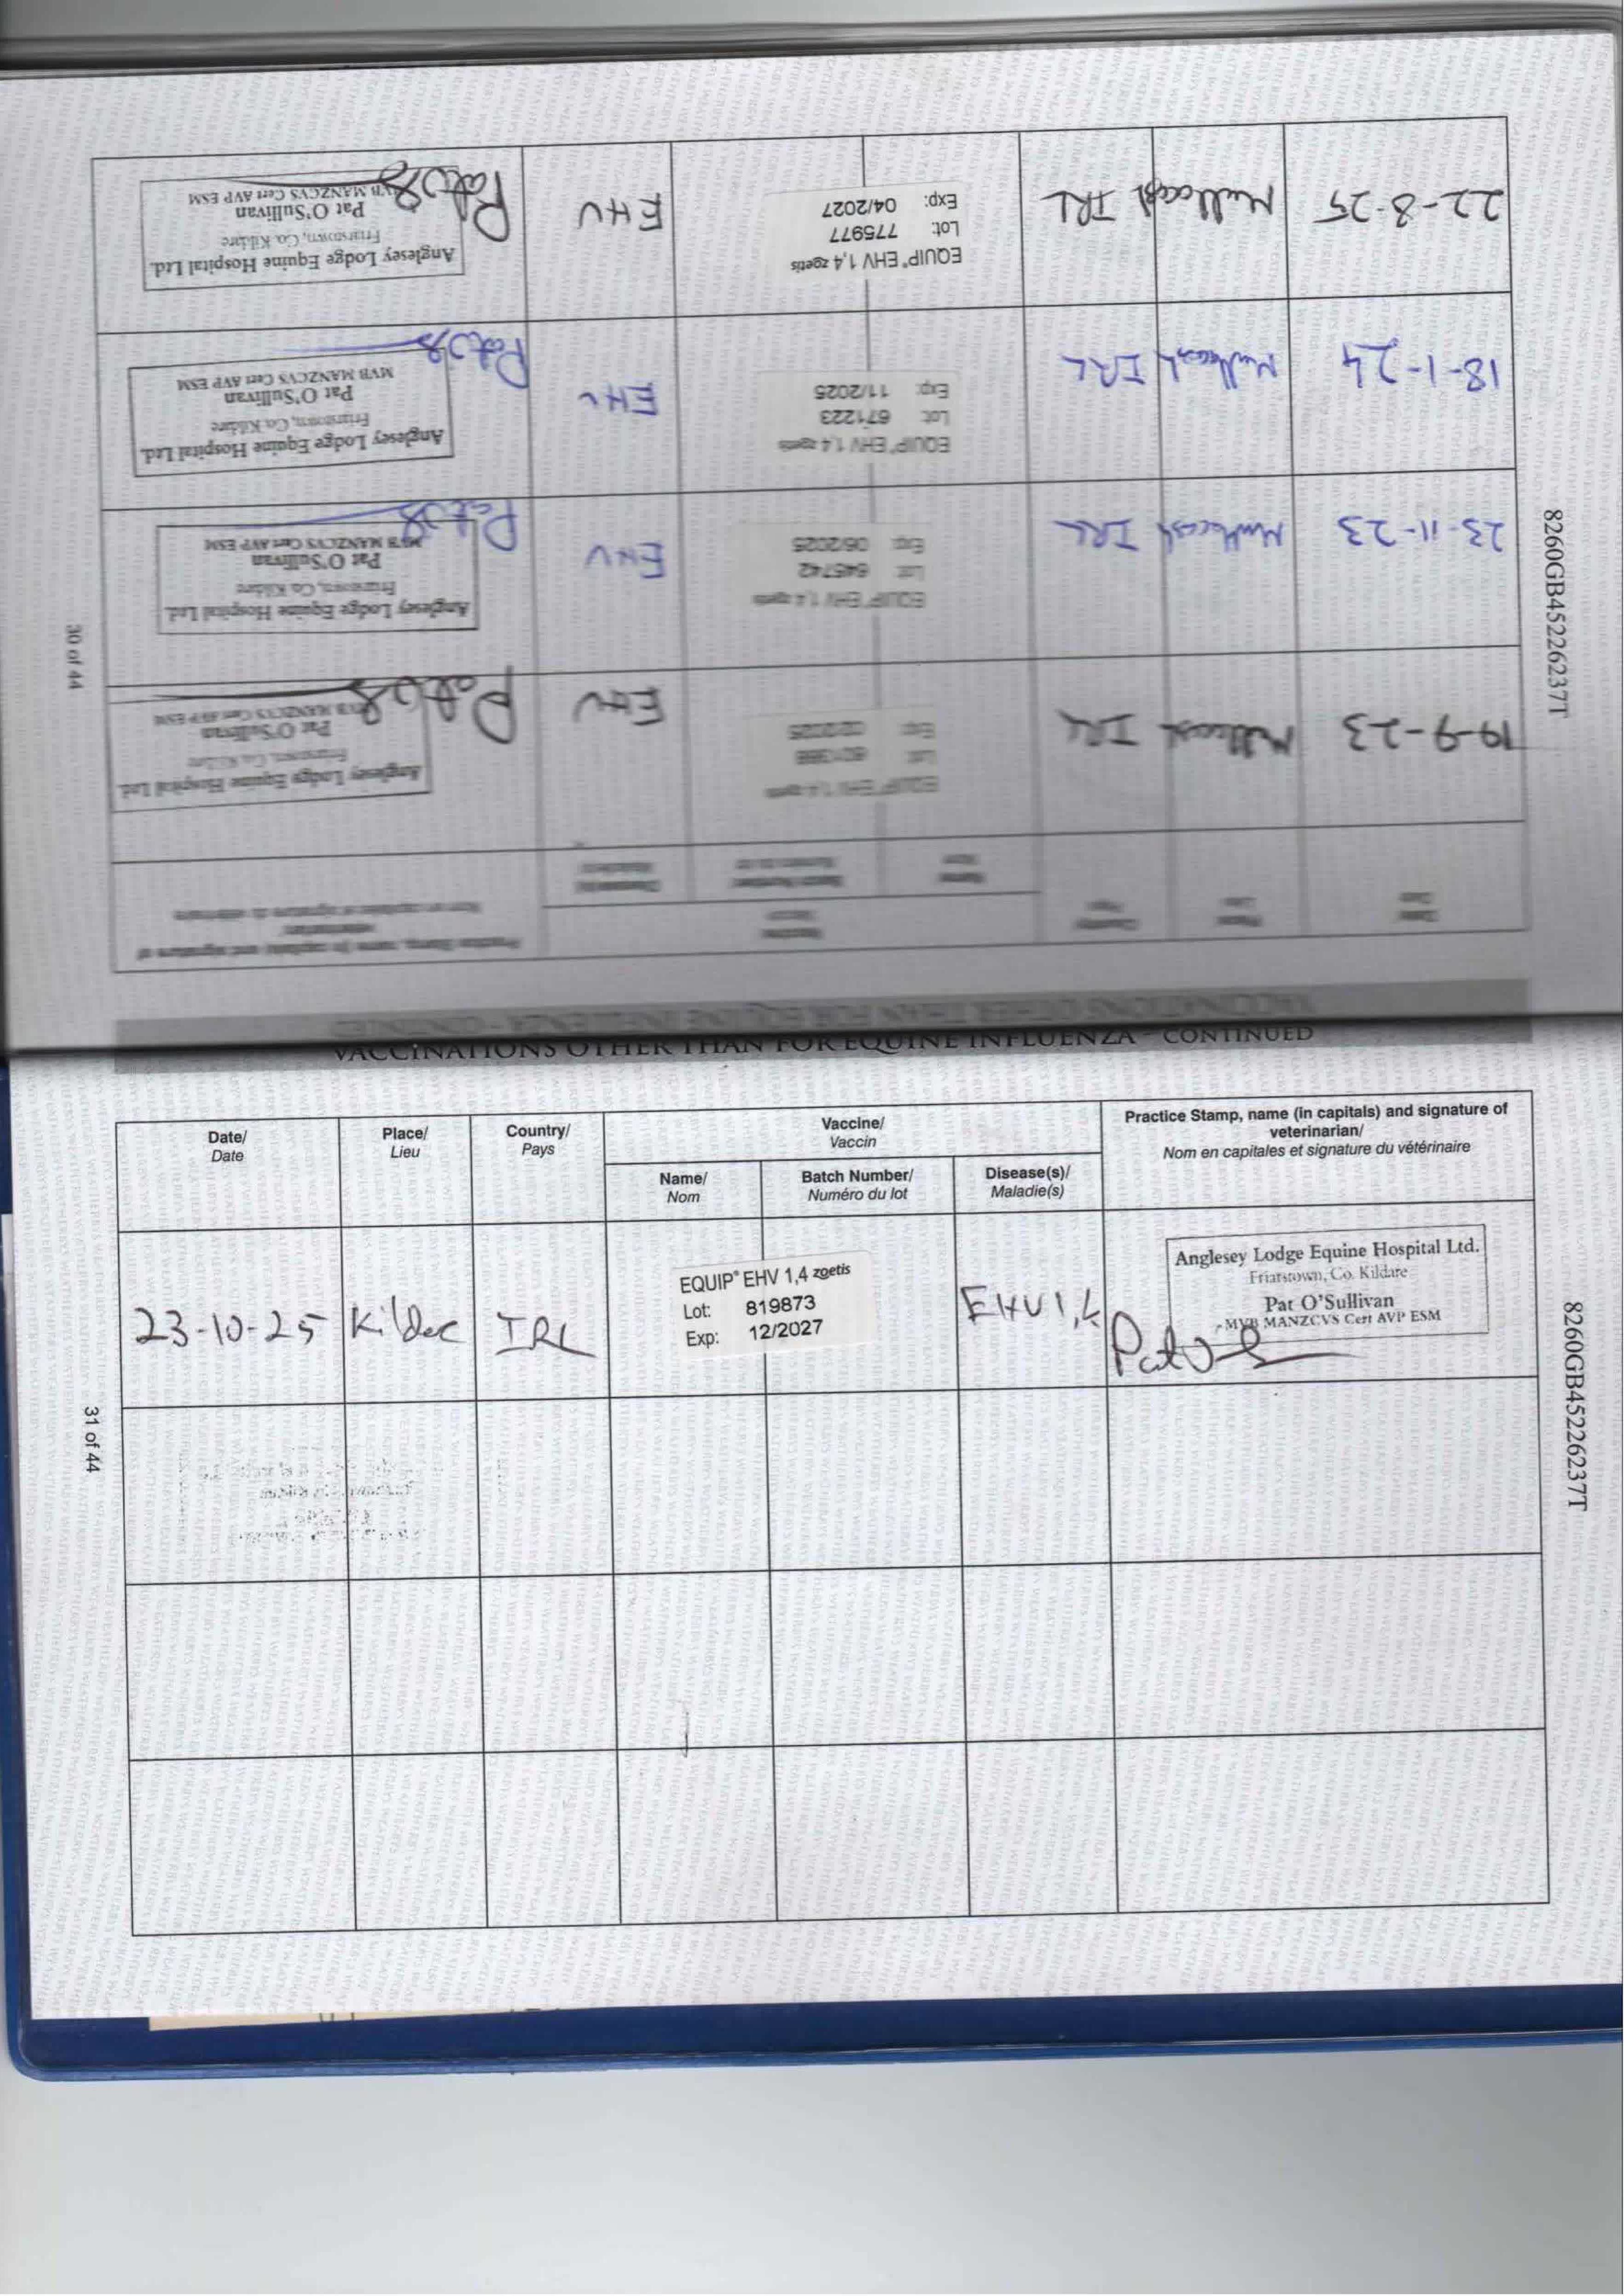 VACCINATIONS OTHER THAN FOR EQUINE INFLUENZA - CONTINUED
Date/
Date
Place/
Lieu
Country/
Pays
Vaccine/
Vaccin
Name/
Nom
Batch Number/
Numéro du lot
Disease(s)/
Maladie(s)
Practice Stamp, name (in capitals) and signature of
veterinarian/
Nom en capitales et signature du vétérinaire
19-9-23
IRL
EQUIP® EHV 1,4 zoetis
Lot:
Exp: 02/2025
EHV
Anglesey Lodge Equine Hospital Ltd.
Friarstown, Co. Kildare
Pat O'Sullivan
MVB MANZCVS Cert AVP ESM
23-11-23
IRL
EQUIP® EHV 1,4 zoetis
Lot: 645742
Exp: 06/2025
EHV
Anglesey Lodge Equine Hospital Ltd.
Friarstown, Co. Kildare
Pat O'Sullivan
MVB MANZCVS Cert AVP ESM
18-1-24
IRL
EQUIP® EHV 1,4 zoetis
Lot: 671223
Exp: 11/2025
EHV
Anglesey Lodge Equine Hospital Ltd.
Friarstown, Co. Kildare
Pat O'Sullivan
MVB MANZCVS Cert AVP ESM
22-8-25
IRL
EQUIP® EHV 1,4 zoetis
Lot: 775977
Exp: 04/2027
EHV
Anglesey Lodge Equine Hospital Ltd.
Friarstown, Co. Kildare
Pat O'Sullivan
MVB MANZCVS Cert AVP ESM
30 of 44
8260GB45226237T
VACCINATIONS OTHER THAN FOR EQUINE INFLUENZA - CONTINUED
Date/
Date
Place/
Lieu
Country/
Pays
Vaccine/
Vaccin
Name/
Nom
Batch Number/
Numéro du lot
Disease(s)/
Maladie(s)
Practice Stamp, name (in capitals) and signature of
veterinarian/
Nom en capitales et signature du vétérinaire
23-10-25
Kildare
IRL
EQUIP® EHV 1,4 zoetis
Lot: 819873
Exp: 12/2027
EHV 1,4
Anglesey Lodge Equine Hospital Ltd.
Friarstown, Co. Kildare
Pat O'Sullivan
MVB MANZCVS Cert AVP ESM
31 of 44
8260GB45226237T